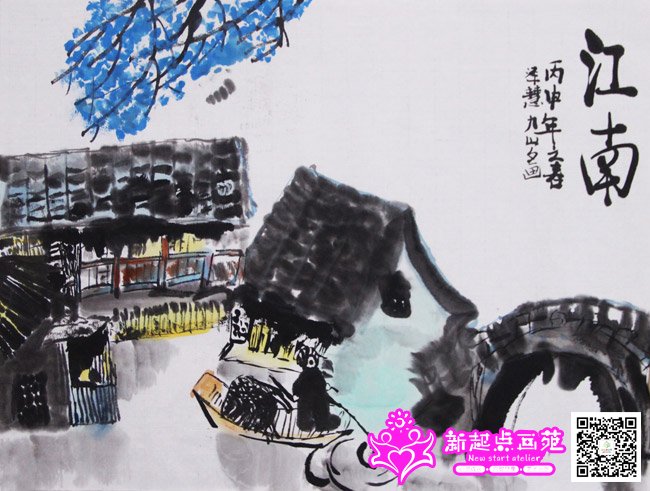 江南
丙申年之春
九山夕画
新起点画苑
New start atelier